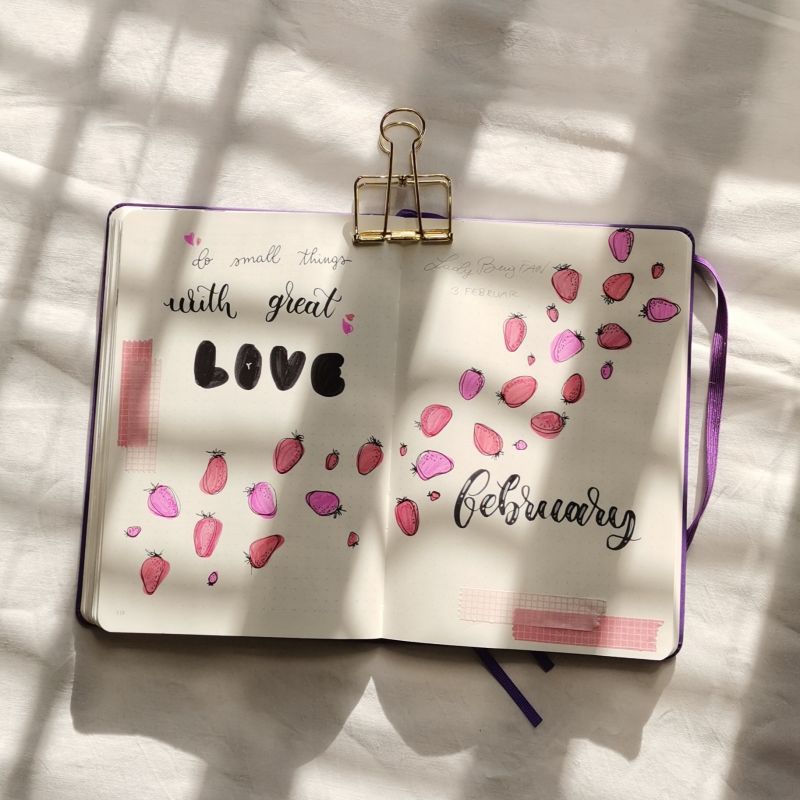 do small things
with great
LOVE
Lady
3. FEBRUAR
february